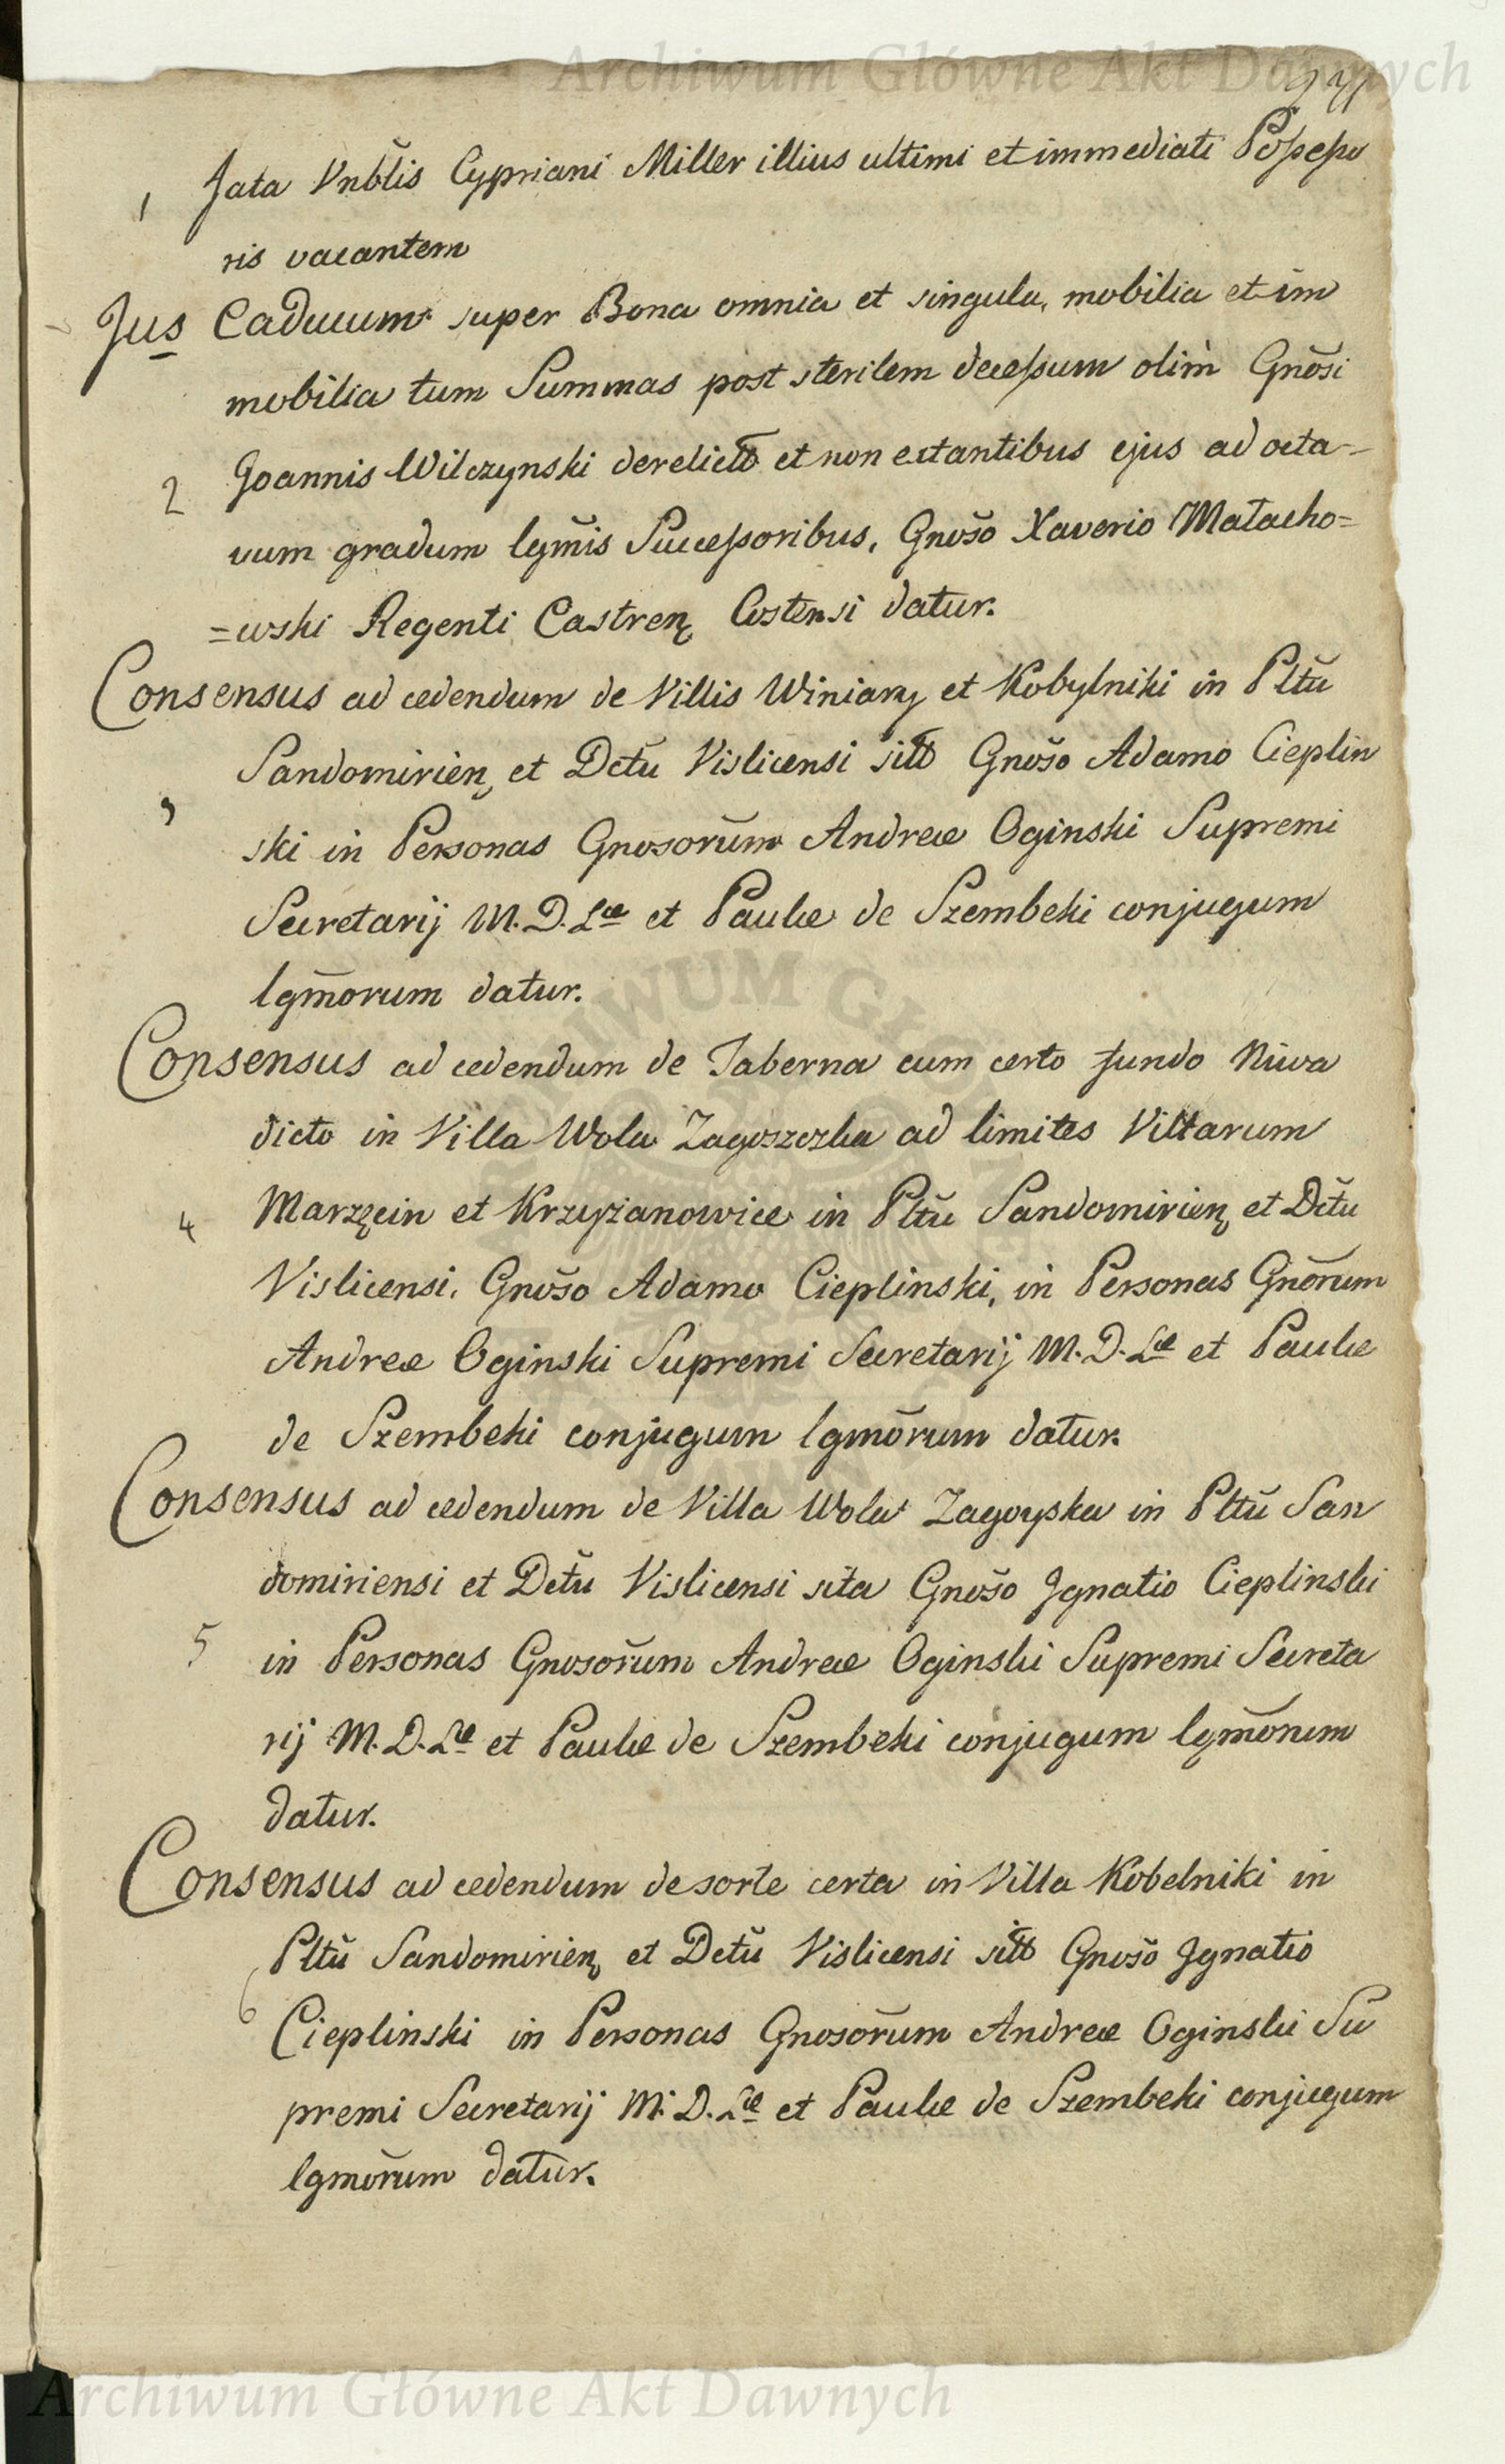 Archiwum Główne Akt Dawnych
1 fata Vnblis Cypriani Miller illius ultimi et immediati Possesso
ris vacantem
Jus Caducum super Bona omnia et singula, mobilia et im
mobilia tum Summas post sterilem decessum olim Gnõsi
2 Joannis Wilczynski derelictt et non extantibus ejus ad octa-
vum gradum lgmis Successoribus, Gnõso Xaverio Małacho=
=wski Regenti Castren Costensi datur.
Consensus ad cedendum de Villis Winiary et Kobylniki in Pltũ
Sandomirien et Dctũ Vislicensi sitt Gnõso Adamo Cieplin
3 ski in Personas Gnosorũm Andreæ Oginski Supremi
Secretarij M.D.Læ et Paulæ de Szembeki conjugum
lgm̃orum datur.
Consensus ad cedendum de Taberna cum certo fundo Niwa
dicto in Villa Wola Zagoszczka ad limites Villarum
4 Marzęcin et Krzyżanowice in Pltũ Sandomirien et Dctũ
Vislicensi, Gnõso Adamo Cieplinski, in Personas Gnõrum
Andreæ Oginski Supremi Secretarij M.D.Læ et Paulæ
de Szembeki conjugum lgmõrum datur.
Consensus ad cedendum de Villa Wola Zagoyska in Pltũ San
domiriensi et Dctũ Vislicensi sita Gnõso Ignatio Cieplinski
5 in Personas Gnosorũm Andreæ Oginski Supremi Secreta
rij M.D.Læ et Paulæ de Szembeki conjugum lgm̃orum
datur.
Consensus ad cedendum de sorte certa in Villa Kobelniki in
Pltũ Sandomirien et Dctũ Vislicensi sitt Gnõso Ignatio
6 Cieplinski in Personas Gnosorũm Andreæ Oginski Su
premi Secretarij M.D.Læ et Paulæ de Szembeki conjugum
lgmõrum datur.
Archiwum Główne Akt Dawnych